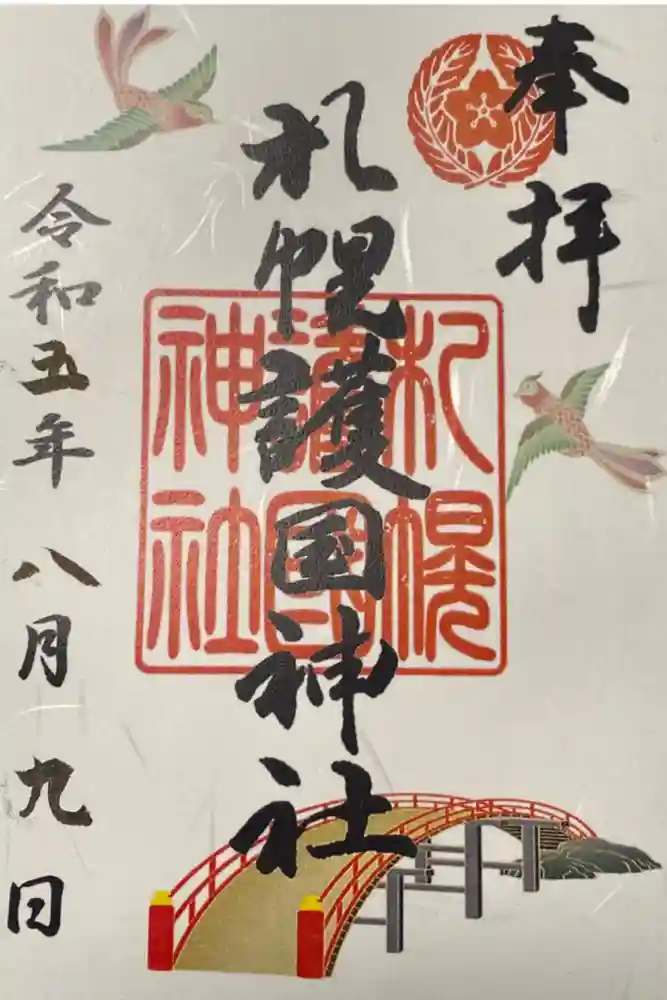 奉拝
札幌護国神社
札幌
護國
神社
令和五年八月九日